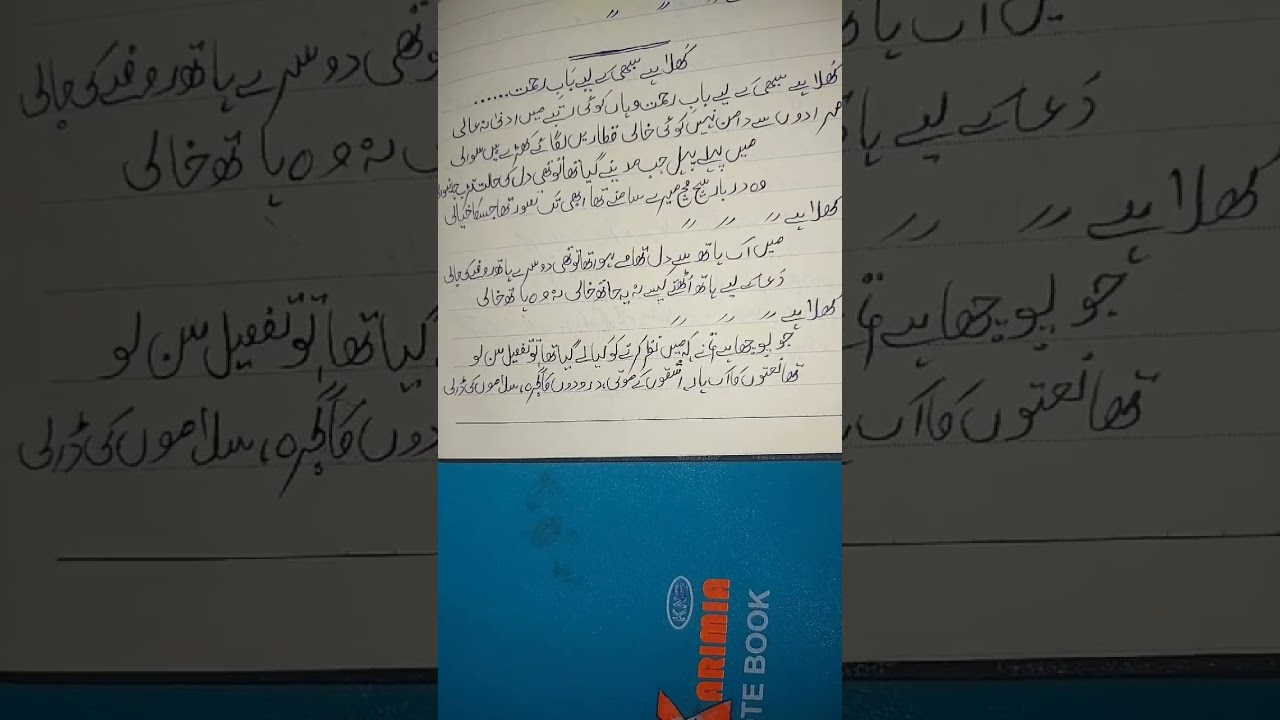 〃 〃 〃
کھلا ہے سبھی کے لیے بابِ رحمت......
کھلا ہے سبھی کے لیے باب رحمت وہاں کوئی رتبے میں ادنیٰ نہ عالی
مرادوں سے دامن نہیں کوئی خالی قطاریں لگائے کھڑے ہیں سوالی
میں پہلے پہل جب مدینے گیا تھا تو تھی دل کی حالت تڑپ
وہ دربار سچ مچ میرے سامنے تھا ابھی تک تصور تھا جسکا خیالی
کھلا ہے 〃 〃 〃
میں اک ہاتھ سے دل تھامے ہوۓ تھا تو تھی دوسرے ہاتھ روضے کی جالی
دعا کے لیے ہاتھ اٹھتے کیسے نہ یہ ہاتھ خالی نہ وہ ہاتھ خالی
کھلا ہے 〃 〃 〃
جو پوچھا ہے تم نے کہ میں نظر کرنے کو کیا لے گیا تھا تو تفصیل سن لو
تھا نعتوں کا اک ہار اشکوں کے موتی، درودوں کا گجرہ، سلاموں کی ڈالی
KNB
KARIMIA
TE BOOK